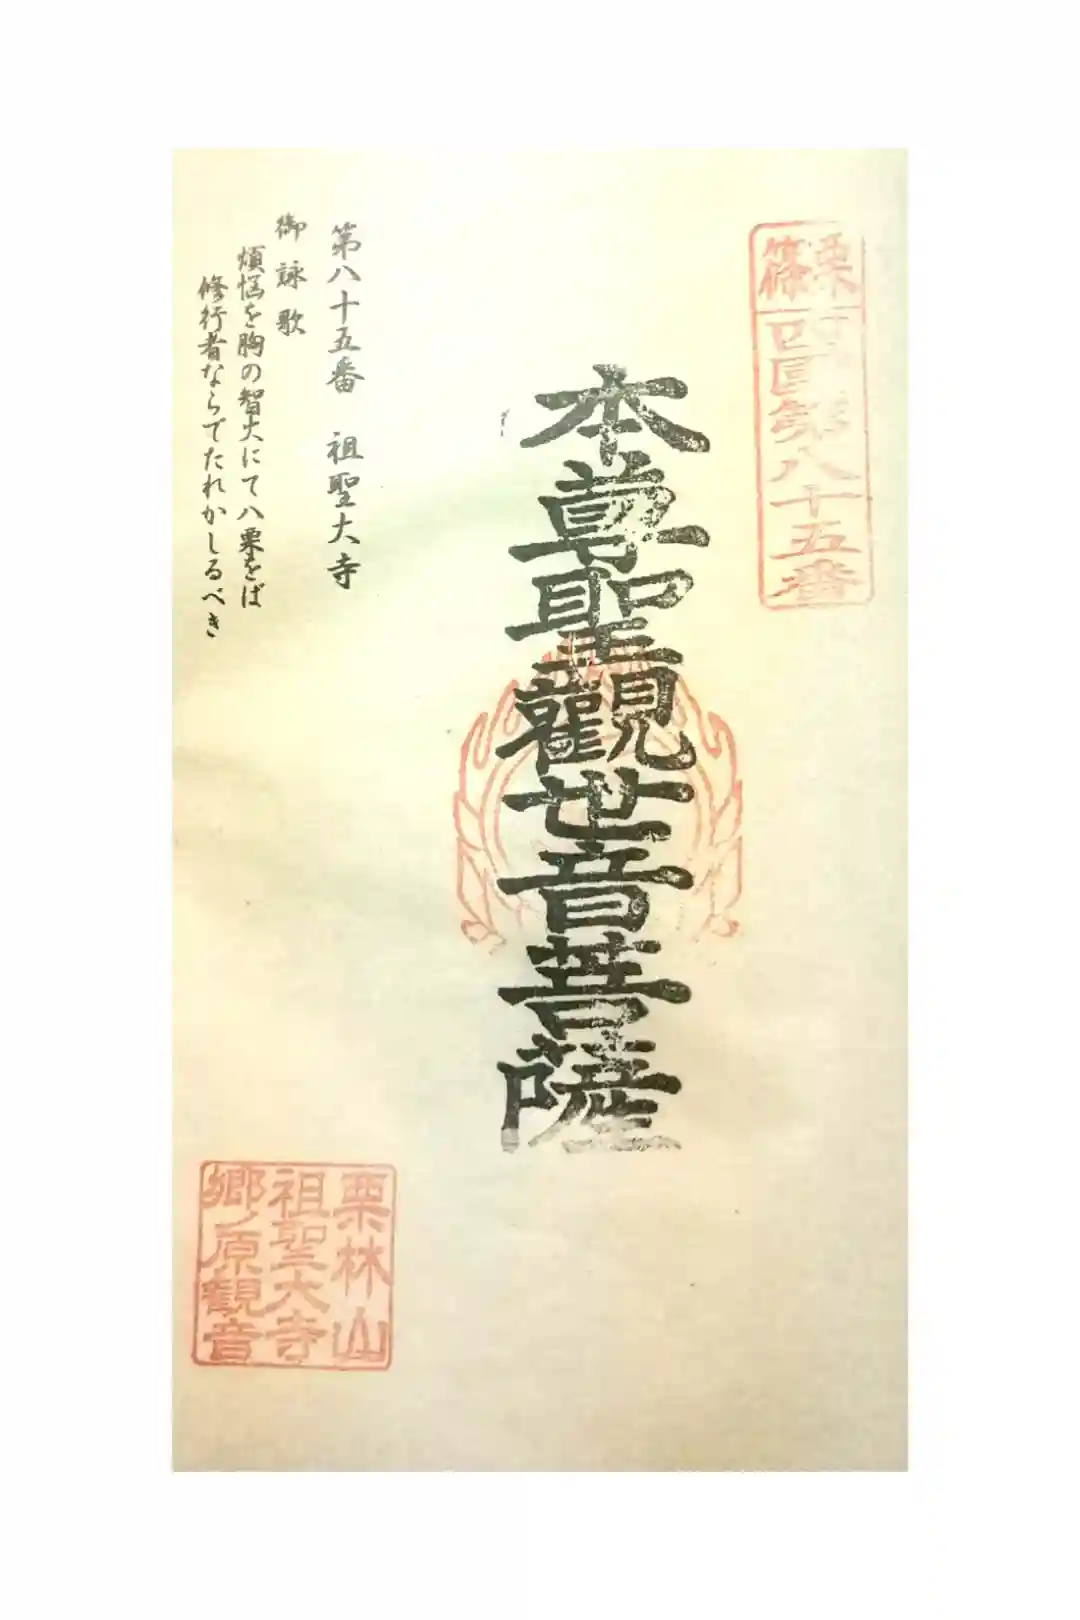 篠栗
四国第八十五番
本尊聖觀世音菩薩
第八十五番　祖聖大寺
御詠歌
煩悩を胸の智火にて八栗をば
修行者ならでたれかしるべき
栗林山
祖聖大寺
郷ノ原観音